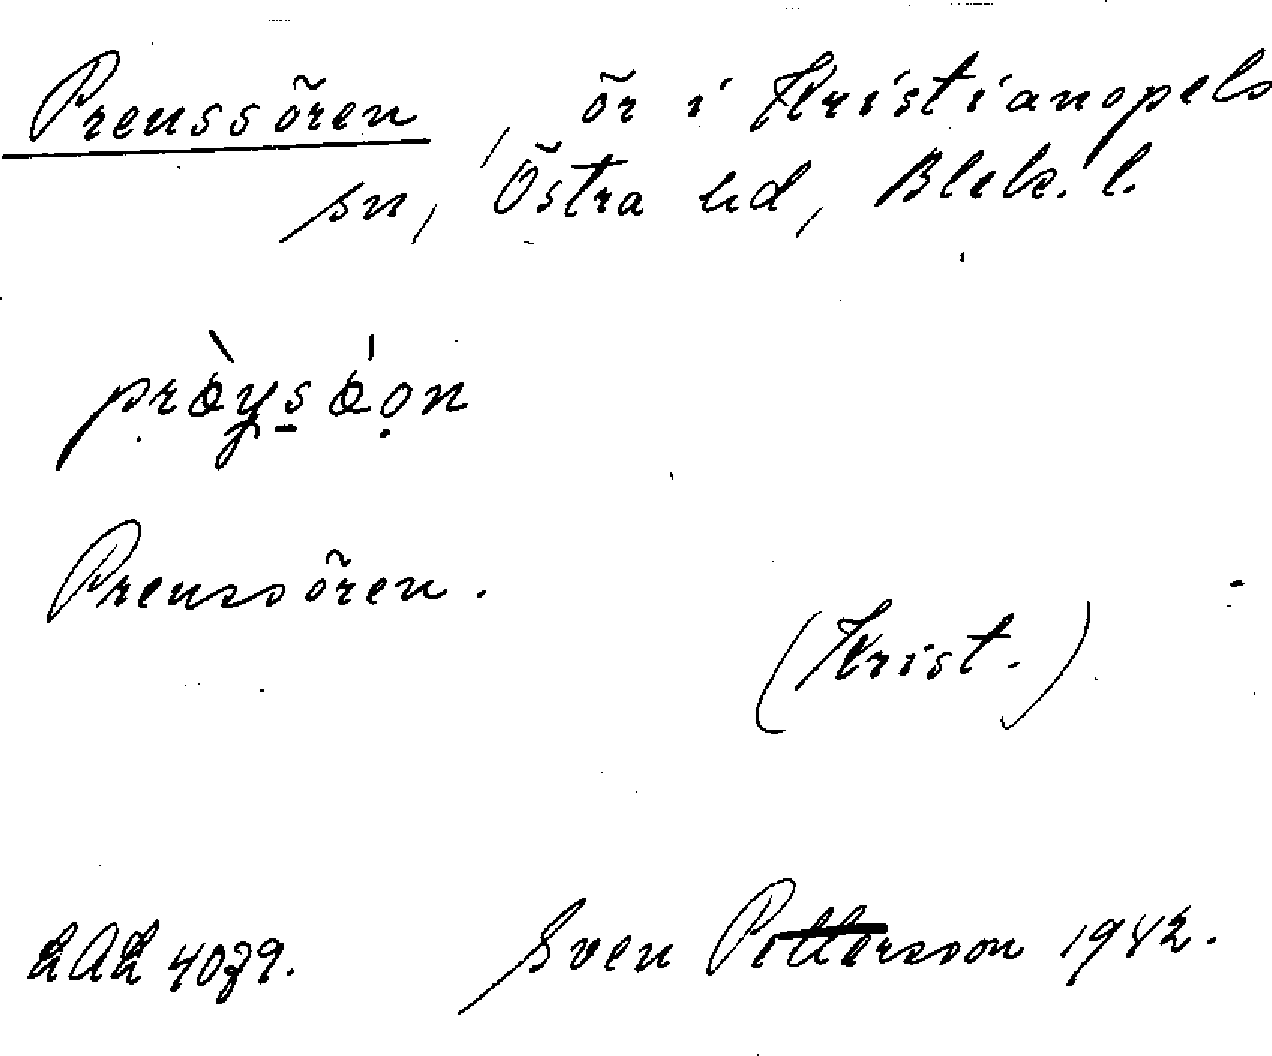 Preussören, ör i Kristianopels
sn, Östra hd, Blek. l.
Preussören.
(Krist.)
LAL 4079. Sven Pettersson 1942.